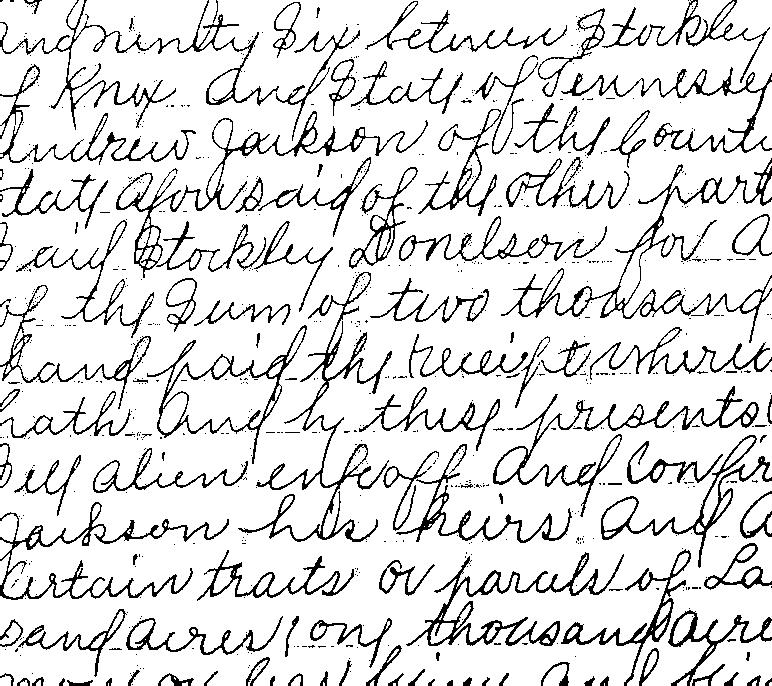 and ninity Six between Stockley
of Knox and State of Tennessey
Andrew Jackson of the Count
State aforesaid of the other part
Said Stockley Donelson for a
of the Sum of two thousand
hand paid the receipt where
hath and by these presents
Sell alien enfeoff and Confir
Jackson his heirs and a
Certain tracts or parcels of La
sand acres one thousand acre
more or less being and bein